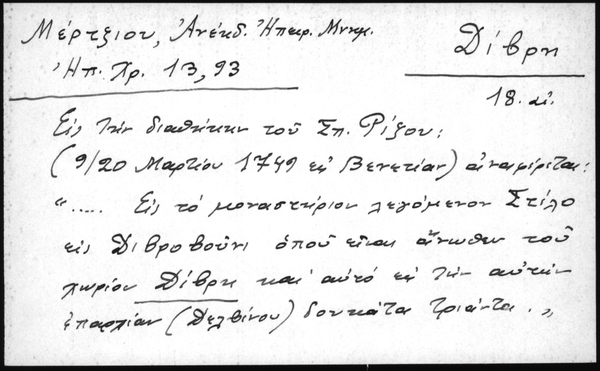 Μέρτζιου, Ἀνέκδ. Ἠπειρ. Μνημ.
Ἠπ. Χρ. 13, 93
Δίβρη
18. αἰ.
Εἰς τὴν διαθήκην τοῦ Σπ. Ρίζου:
(9/20 Μαρτίου 1749 ἐν Βενετίᾳ) ἀναφέρεται:
"..... Εἰς τὸ μοναστήριον λεγόμενον Στίλο
εἰς Διβροβούνι ὁποῦ εἶναι ἄνωθεν τοῦ
χωρίου Δίβρη καὶ αὐτὸ εἰς τὴν αὐτὴν
ἐπαρχίαν (Δελβίνου) δουκάτα τριάντα."